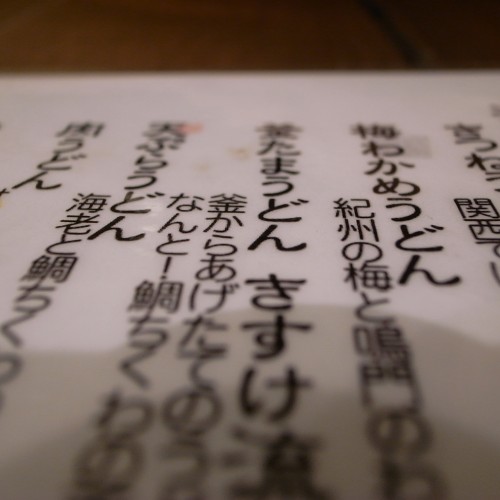 きつね
関西で
梅わかめうどん
紀州の梅と鳴門のわ
釜たまうどん きすけ
釜からあげたてのう
なんと!鯛ちくわの
天ぷらうどん
海老と鯛ちくわ
肉うどん